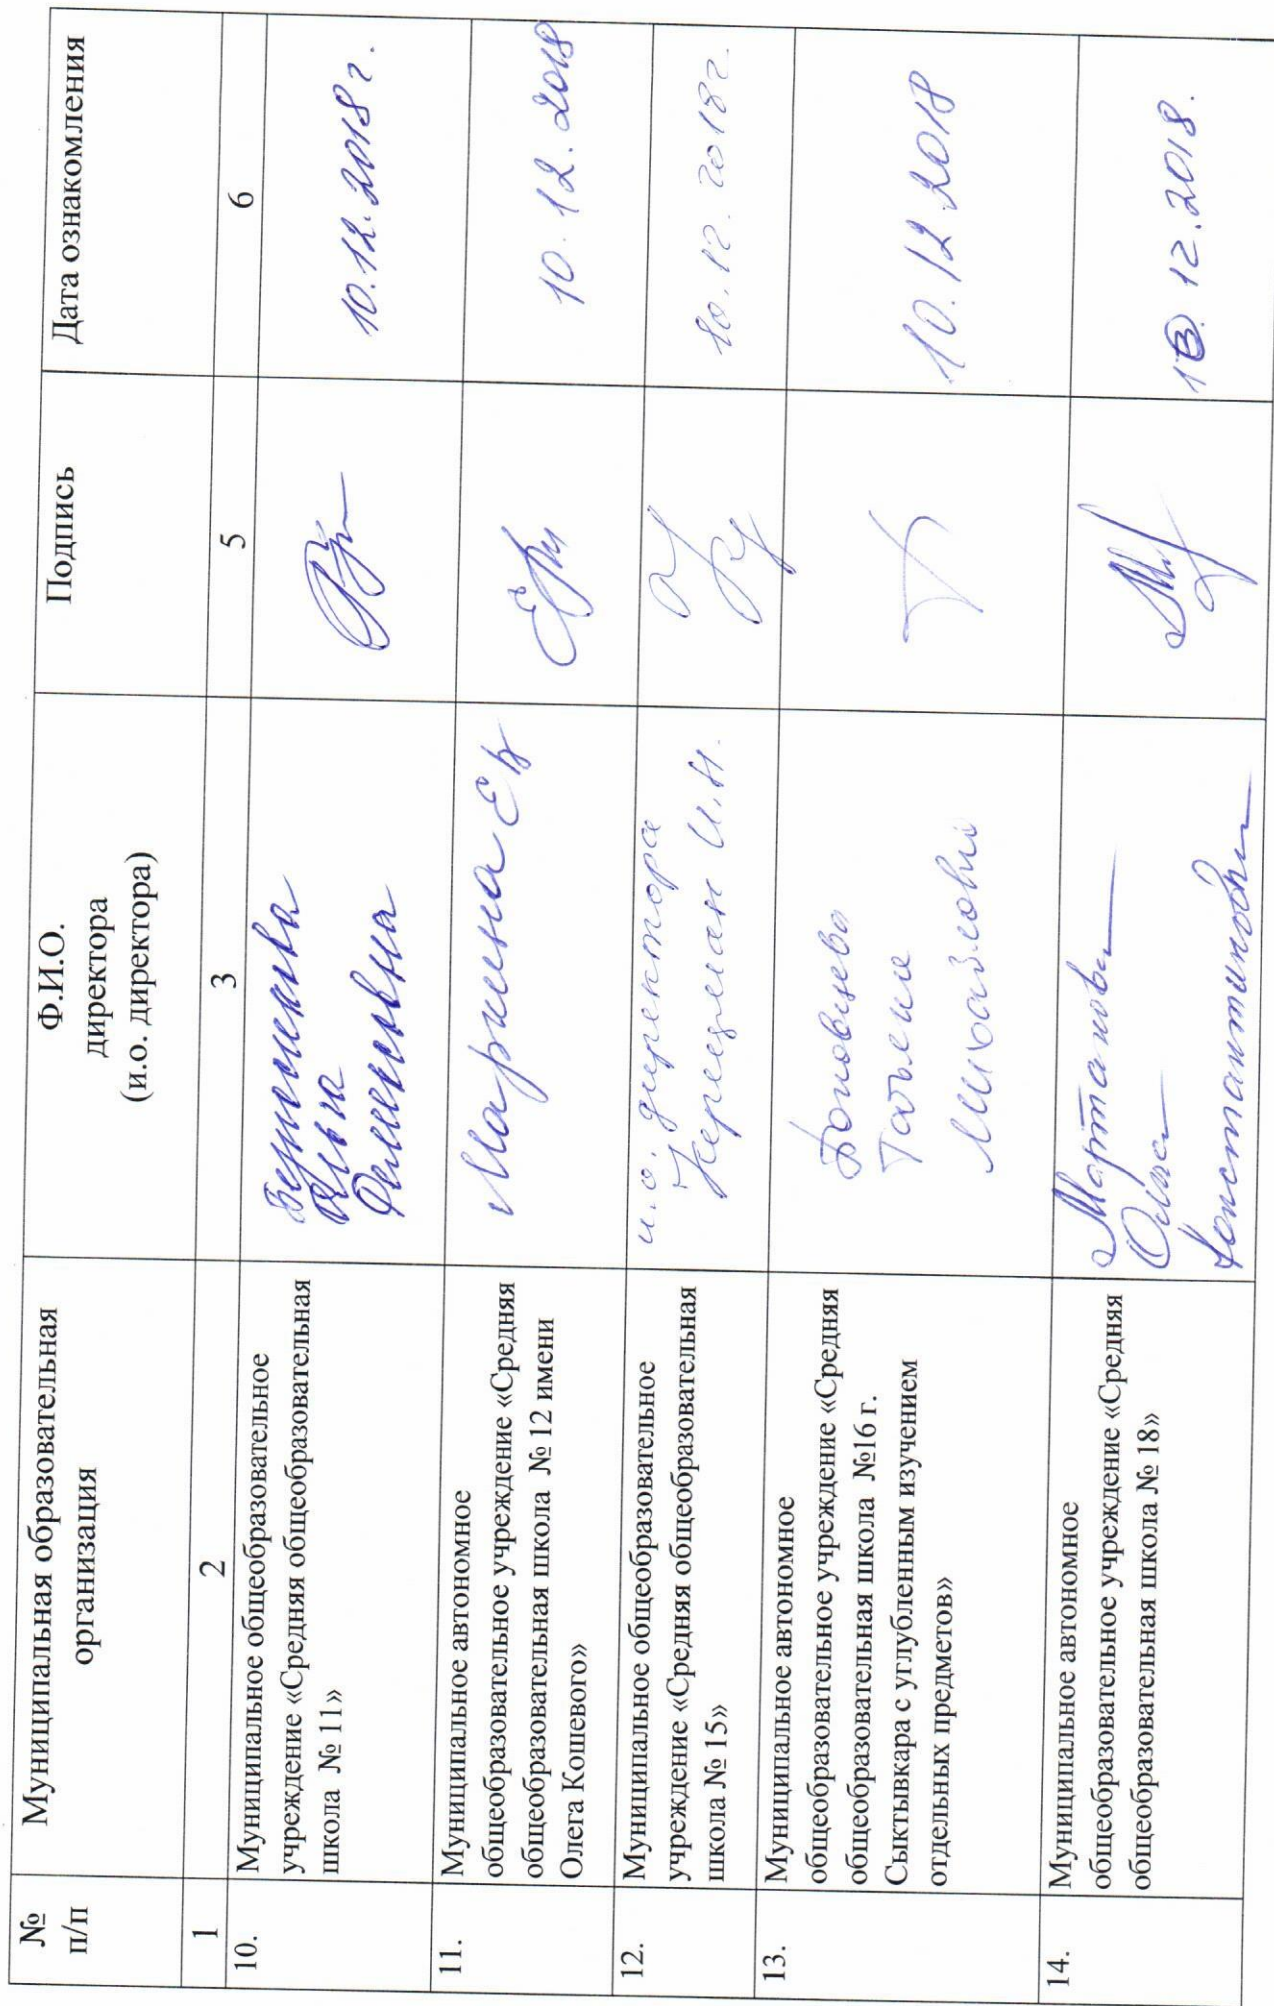 №
п/п
Муниципальная образовательная
организация
Ф.И.О.
директора
(и.о. директора)
Подпись
Дата ознакомления
1
2
3
5
6
10.
Муниципальное общеобразовательное
учреждение «Средняя общеобразовательная
школа № 11»
10.12.2018 г.
11.
Муниципальное автономное
общеобразовательное учреждение «Средняя
общеобразовательная школа № 12 имени
Олега Кошевого»
Маркина Е В
10.12.2018
12.
Муниципальное общеобразовательное
учреждение «Средняя общеобразовательная
школа № 15»
и.о. директора
10.12.2018г.
13.
Муниципальное автономное
общеобразовательное учреждение «Средняя
общеобразовательная школа №16 г.
Сыктывкара с углубленным изучением
отдельных предметов»
Татьяна
Михайловна
10.12.2018
14.
Муниципальное автономное
общеобразовательное учреждение «Средняя
общеобразовательная школа № 18»
Мартанова
Ольга
Константиновна
12.2018.